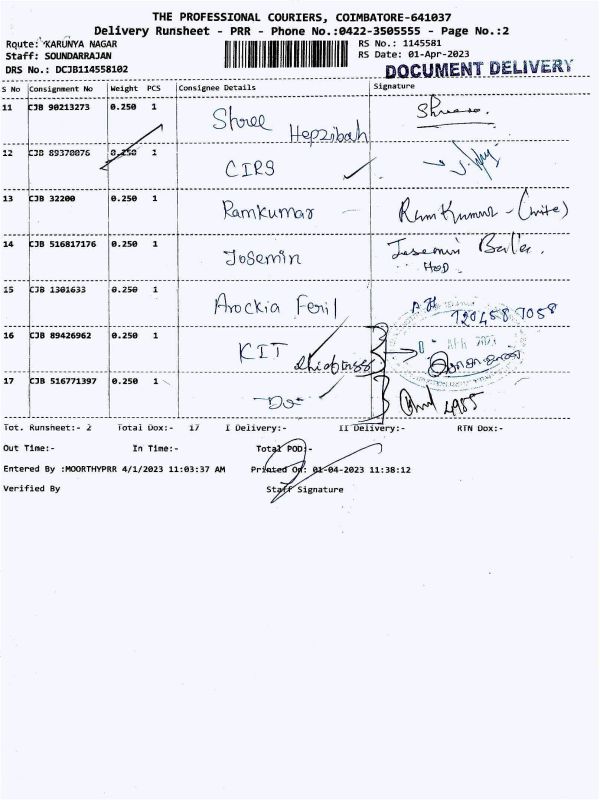 THE PROFESSIONAL COURIERS, COIMBATORE-641037
Delivery Runsheet - PRR - Phone No.:0422-3505555 - Page No.:2
Route: KARUNYA NAGAR RS No.: 1145581
Staff: SOUNDARRAJAN RS Date: 01-Apr-2023
DRS No.: DCJB114558102 DOCUMENT DELIVERY
S No Consignment No Weight PCS Consignee Details Signature
11 CJB 90213273 0.250 1 Shree Hepzibah
12 CJB 89370076 0.250 1 CIRS
13 CJB 32200 0.250 1 Ramkumar RamKumar - (wife)
14 CJB 516817176 0.250 1 Josemin
HOD
15 CJB 1301633 0.250 1 Arockia Feril
16 CJB 89426962 0.250 1 KIT
17 CJB 516771397 0.250 1 Do 4985
Tot. Runsheet:- 2 Total Dox:- 17 I Delivery:- II Delivery:- RTN Dox:-
Out Time:- In Time:- Total POD:-
Entered By :MOORTHYPRR 4/1/2023 11:03:37 AM Printed On: 01-04-2023 11:38:12
Verified By Staff Signature